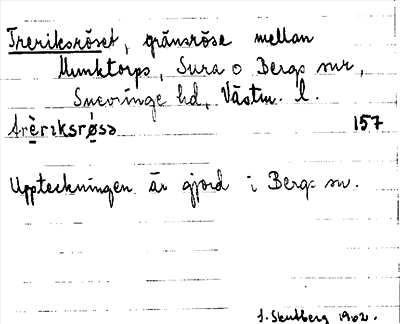 Treriksröset, gränsröse mellan
Munktorps, Sura o Bergs snr,
Snevringe hd, Västm. l.
trèriksrø̀sə 157
Uppteckningen är gjord i Bergs sn.
J. Skutberg 1962.